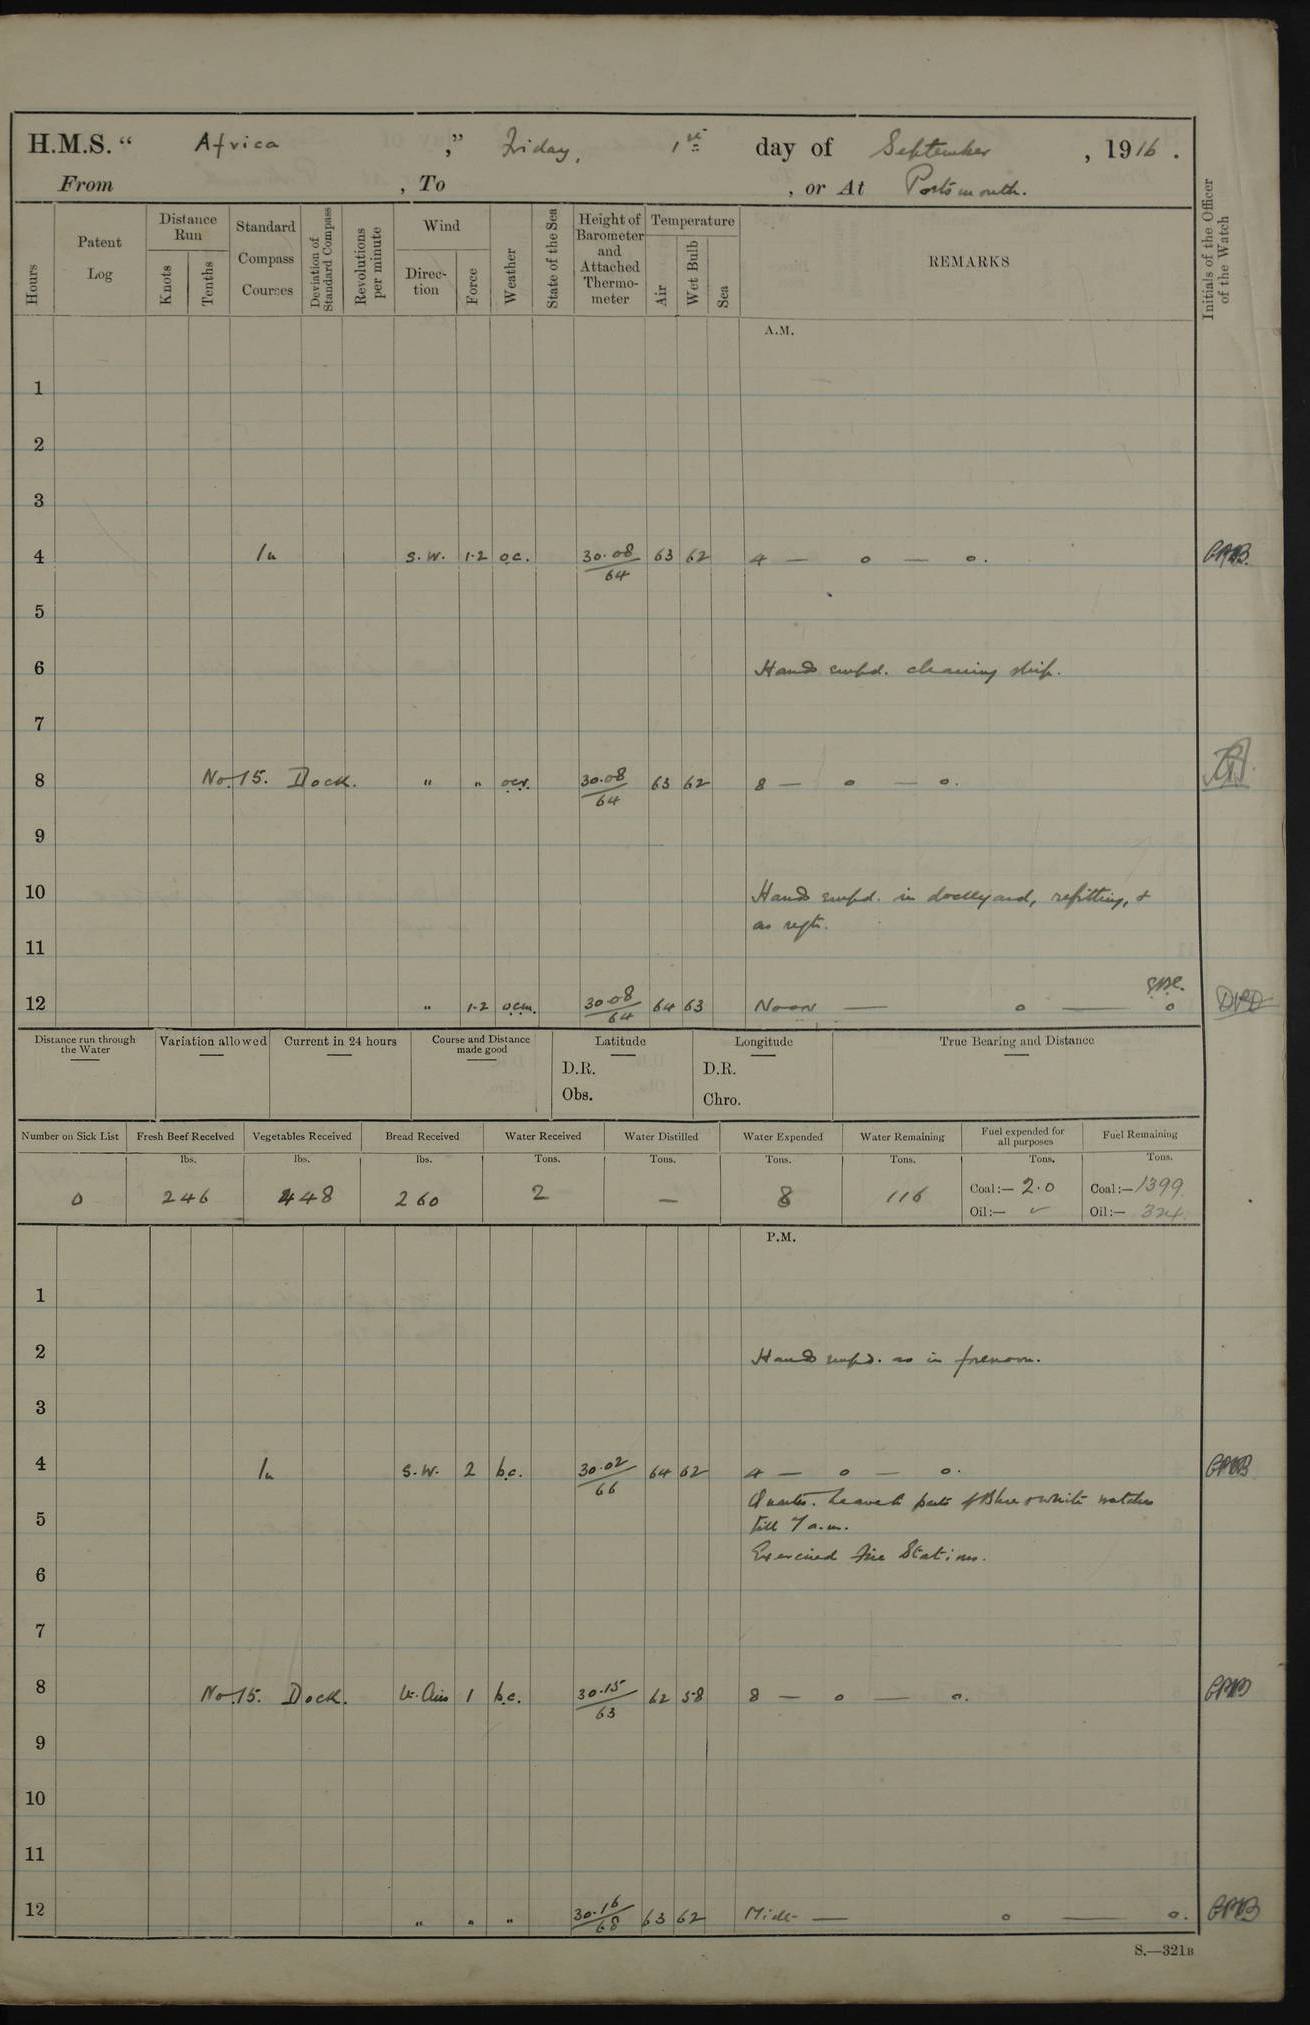 H.M.S. “ Africa ,” Friday, 1st day of September , 1916 .
From , To , or At Portsmouth.
Hours
Patent Log
Distance Run
Knots
Tenths
Standard Compass Courses
Deviation of Standard Compass
Revolutions per minute
Wind
Direction
Force
Weather
State of the Sea
Height of Barometer and Attached Thermometer
Temperature
Air
Wet Bulb
Sea
REMARKS
Initials of the Officer of the Watch
A.M.
1
2
3
4 In S.W. 1.2 o.c. 30.08/64 63 62 4 — o — o.
5
6 Hands empd. cleaning ship.
7
8 No. 15. Dock. " " 30.08/64 63 62 8 — o — o.
9
10 Hands empd. in dockyard, refitting, &
as reqte.
11
12 " 1.2 o.c.m. 30.08/64 64 63 Noon — o — o
Distance run through the Water
Variation allowed
Current in 24 hours
Course and Distance made good
Latitude
D.R.
Obs.
Longitude
D.R.
Chro.
True Bearing and Distance
Number on Sick List Fresh Beef Received Vegetables Received Bread Received Water Received Water Distilled Water Expended Water Remaining Fuel expended for all purposes Fuel Remaining
lbs. lbs. lbs. Tons. Tons. Tons. Tons. Tons. Tons.
0 246 448 260 2 — 8 116 Coal:— 2.0 Coal:— 1399
Oil:— ✓ Oil:— 324
P.M.
1
2 Hands empd. as in forenoon.
3
4 In S.W. 2 b.c. 30.02/66 64 62 4 — o — o.
Quarters. Leave to parts of Blue & White watches
5 till 7 a.m.
Exercised Fire Stations.
6
7
8 No. 15. Dock. Lt. Airs 1 b.c. 30.15/63 62 58 8 — o — o.
9
10
11
12 " " " 30.16/68 63 62 Midt — o — o.
S.—321B